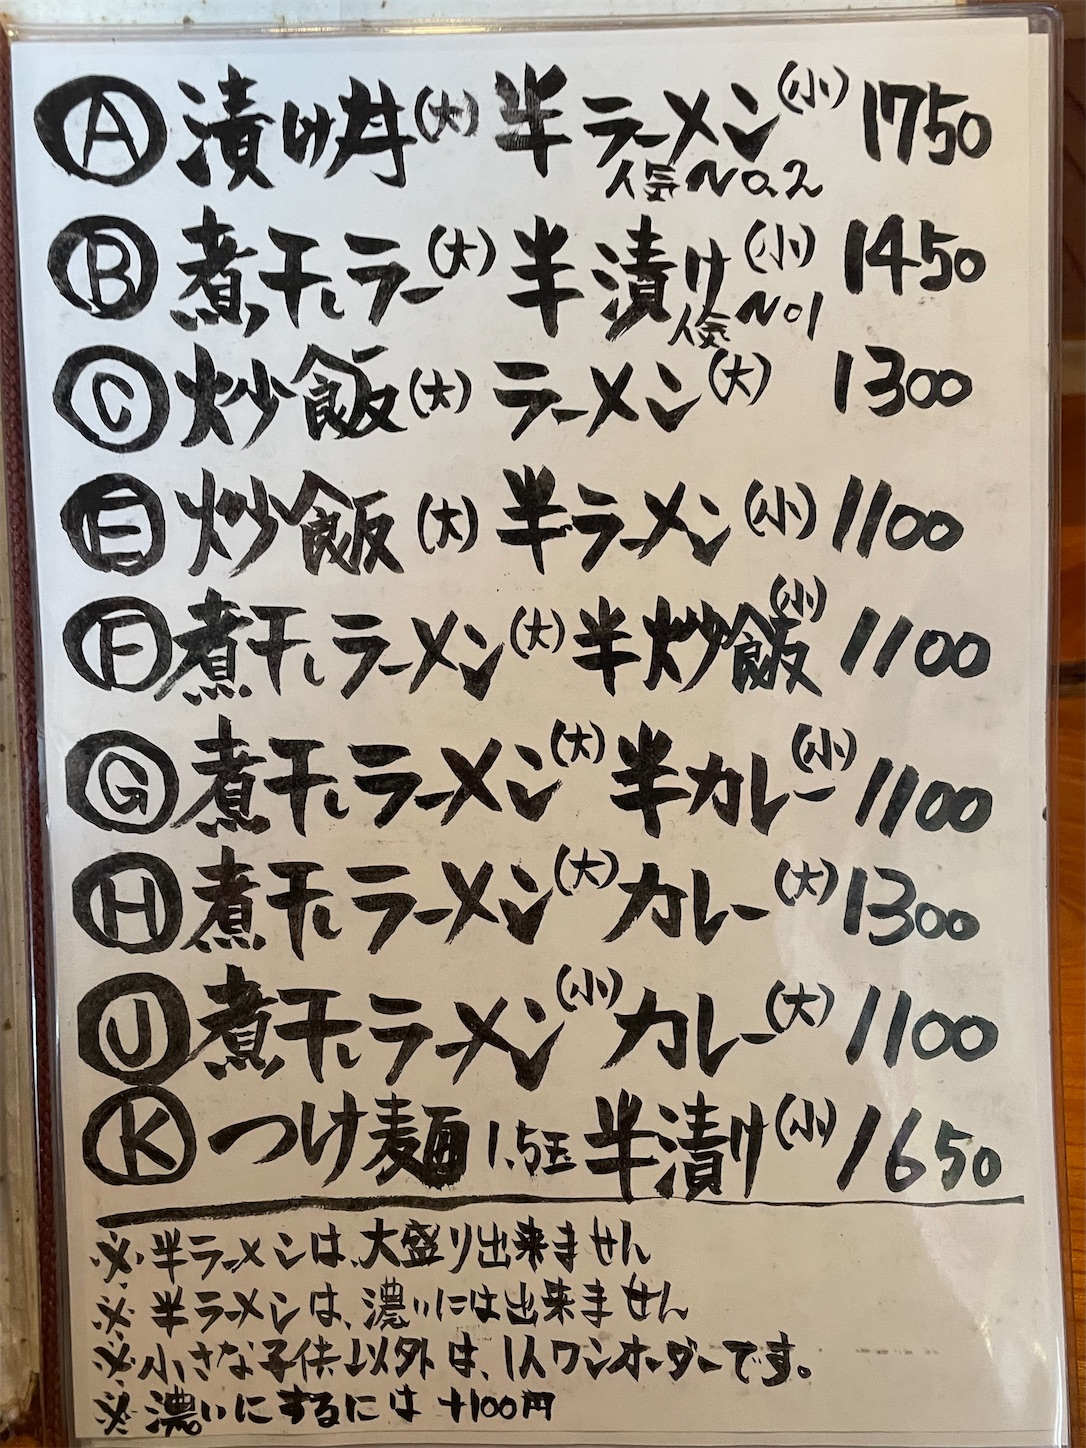 Ⓐ 漬け丼(大) 半ラーメン(小) 1750
人気No.2
Ⓑ 煮干しラー(大) 半漬け(小) 1450
人気No1
Ⓒ 炒飯(大) ラーメン(大) 1300
Ⓔ 炒飯(大) 半ラーメン(小) 1100
Ⓕ 煮干しラーメン(大) 半炒飯(小) 1100
Ⓖ 煮干しラーメン(大) 半カレー(小) 1100
Ⓗ 煮干しラーメン(大) カレー(大) 1300
Ⓤ 煮干しラーメン(小) カレー(大) 1100
Ⓚ つけ麺 1.5玉 半漬け(小) 1650
※半ラーメンは、大盛り出来ません
※半ラーメンは、濃いには出来ません
※小さな子供以外は、1人ワンオーダーです。
※濃いにするには +100円